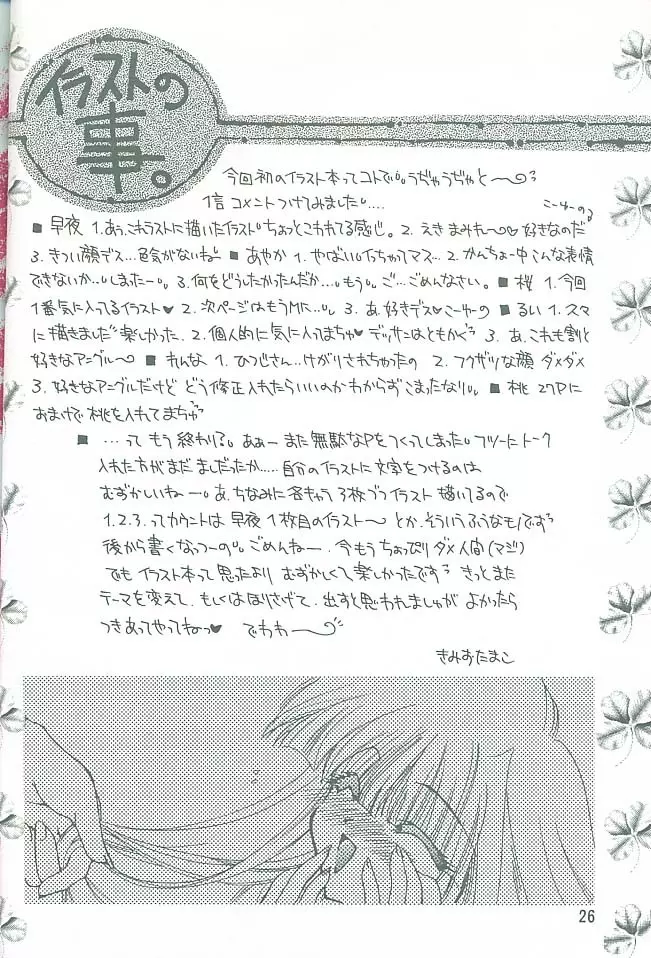 イラストの
事。
今回初のイラスト本ってコトで。うぢゃうぢゃと〜
1言コメントつけてみました。....
■早夜 1.あぅ、これラストに描いたイラスト。ちょっとこわれてる感じ。2.えき まみれ〜♡ 好きなのだ
3.きつい顔デス...色合がないねー ■あやか 1.やばい。イっちゃってマス... 2.かんちょー中 こんな表情
できないか...。しまったー。3.何をどうしたかったんだか...。もう。ご...ごめんなさい。■桜 1.今回
1番気に入ってるイラスト♥ 2.次ページはもうMに...。3.あ、好きデス♥ ■るい 1.スマ
に描きました 楽しかった。2.個人的に気に入ってまちゅ♥ デッサンはともかく 3.あ、これも割と
好きなアングル〜 ■れんな 1.ひつじさん...けがりされちゃったの 2.フクザツな顔 ダメダメ
3.好きなアングルだけど どう修正入れたらいいのかわからずこまったなり。■桃 27Pに
おまけで桃を入れてまちゅ
■ ...って もう終わり?。ああー また無駄なPをつくってしまった。フツーにトーク
入れた方がまだ ましだったか....自分のイラストに文字をつけるのは
むずかしいねー。あ、ちなみに各キャラ3枚づつイラスト描いてるので
1.2.3.ってカウントは 早夜1枚目のイラスト〜 とか、そういうふうなモノです
後から書くなっつーの。ごめんねー。今もうちょっぴりダメ人間(マジ)
でも イラスト本って思ったより むずかしくて楽しかったです きっとまた
テーマを変えて、もしくはほりさげて、出すと思われましゅが よかったら
つきあってやってねっ♥ でわわ〜
きみおたまこ
26